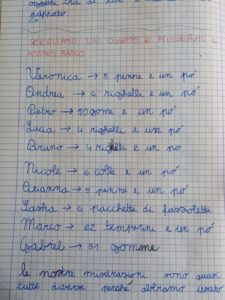 rapporto.
SCEGLIAMO UN OGGETTO E MISURIAMO IL
NOSTRO BANCO
Veronica → 5 penne e un pó
Andrea → 4 righelli e un pó
Pietro → 20 gome e un pó
Lucia → 4 righelli e un pó
Bruno → 4 righelli e un pó
Nicole → 6 colle e un pó
Arianna → 5 penne e un pó
Lasha → 6 pacchetti di fazzoletti
Marco → 22 temperini e un pó
Gabriel → 31 gomme
le nostre misurazioni sono quasi
tutte diverse perché abbiamo usato